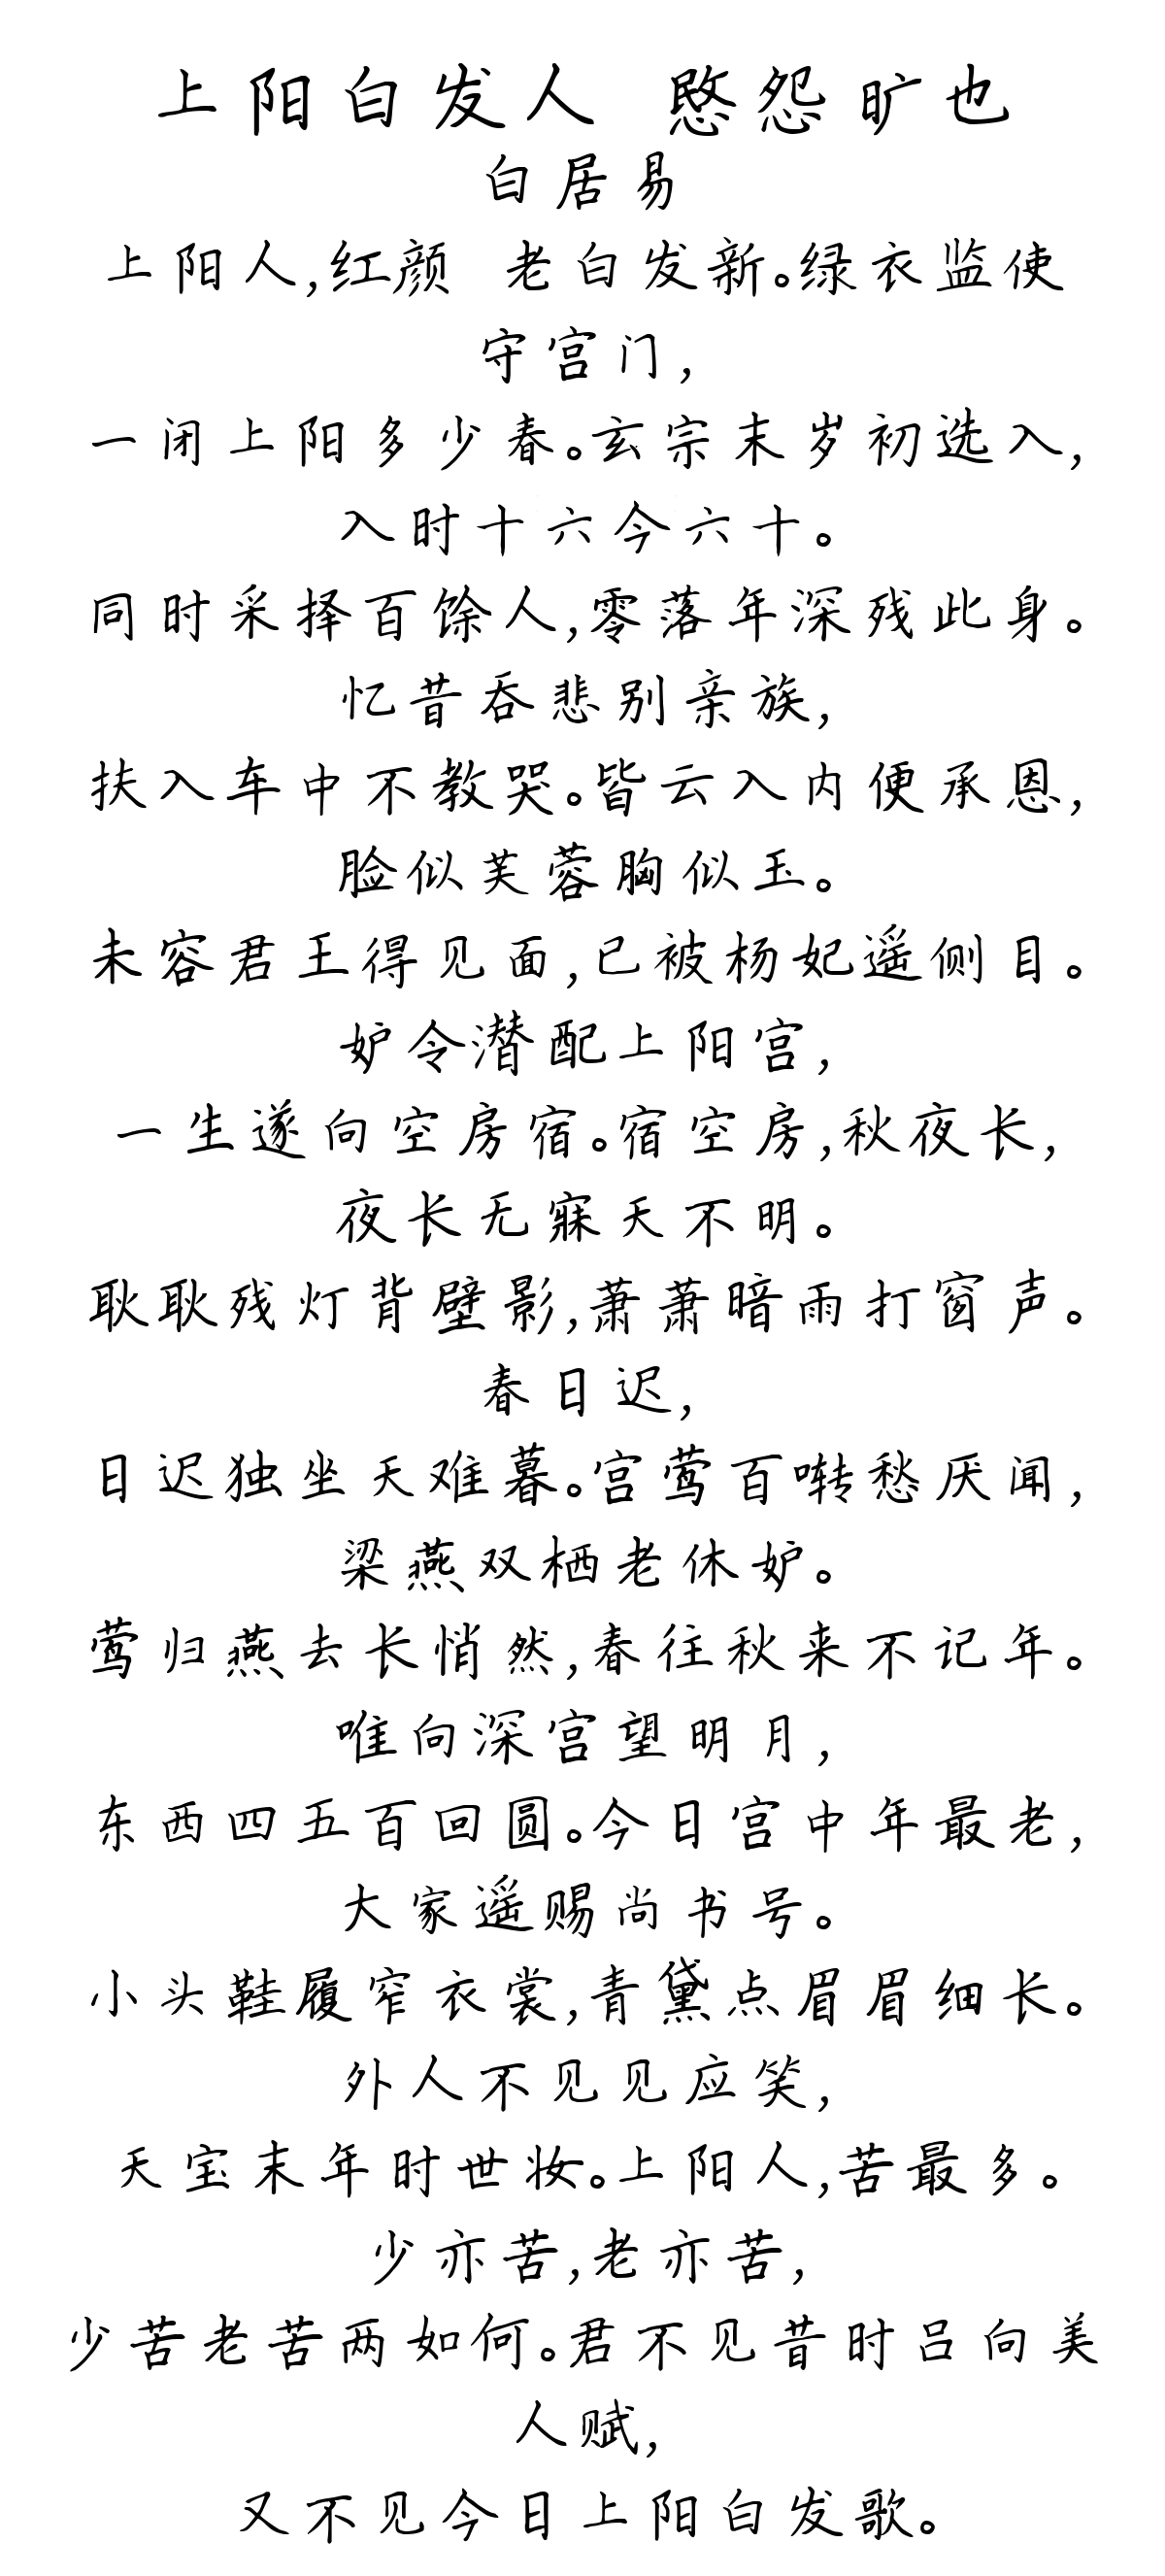 上阳白发人 愍怨旷也
白居易
上阳人,红颜 老白发新。绿衣监使
守宫门,
一闭上阳多少春。玄宗末岁初选入,
入时十六今六十。
同时采择百馀人,零落年深残此身。
忆昔吞悲别亲族,
扶入车中不教哭。皆云入内便承恩,
脸似芙蓉胸似玉。
未容君王得见面,已被杨妃遥侧目。
妒令潜配上阳宫,
一生遂向空房宿。宿空房,秋夜长,
夜长无寐天不明。
耿耿残灯背壁影,萧萧暗雨打窗声。
春日迟,
日迟独坐天难暮。宫莺百啭愁厌闻,
梁燕双栖老休妒。
莺归燕去长悄然,春往秋来不记年。
唯向深宫望明月,
东西四五百回圆。今日宫中年最老,
大家遥赐尚书号。
小头鞋履窄衣裳,青黛点眉眉细长。
外人不见见应笑,
天宝末年时世妆。上阳人,苦最多。
少亦苦,老亦苦,
少苦老苦两如何。君不见昔时吕向美
人赋,
又不见今日上阳白发歌。